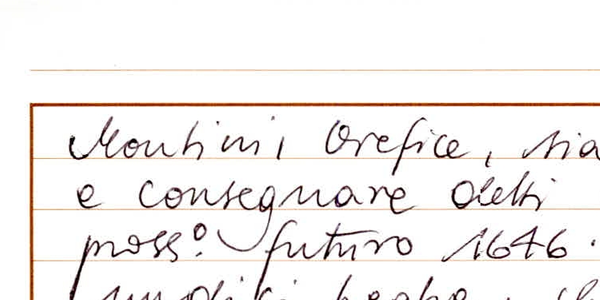 Montini Orefice, sia
e consegnare detti
pross.º futuro 1646.